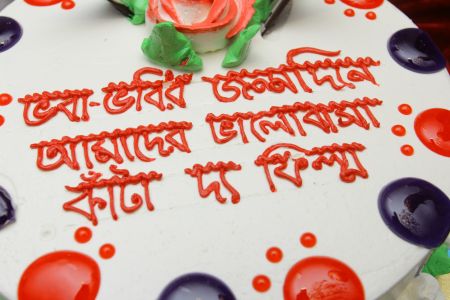 ভবা-ভবির জন্মদিনে
আমাদের ভালোবাসা
কাঁটা দ্য ফিল্ম